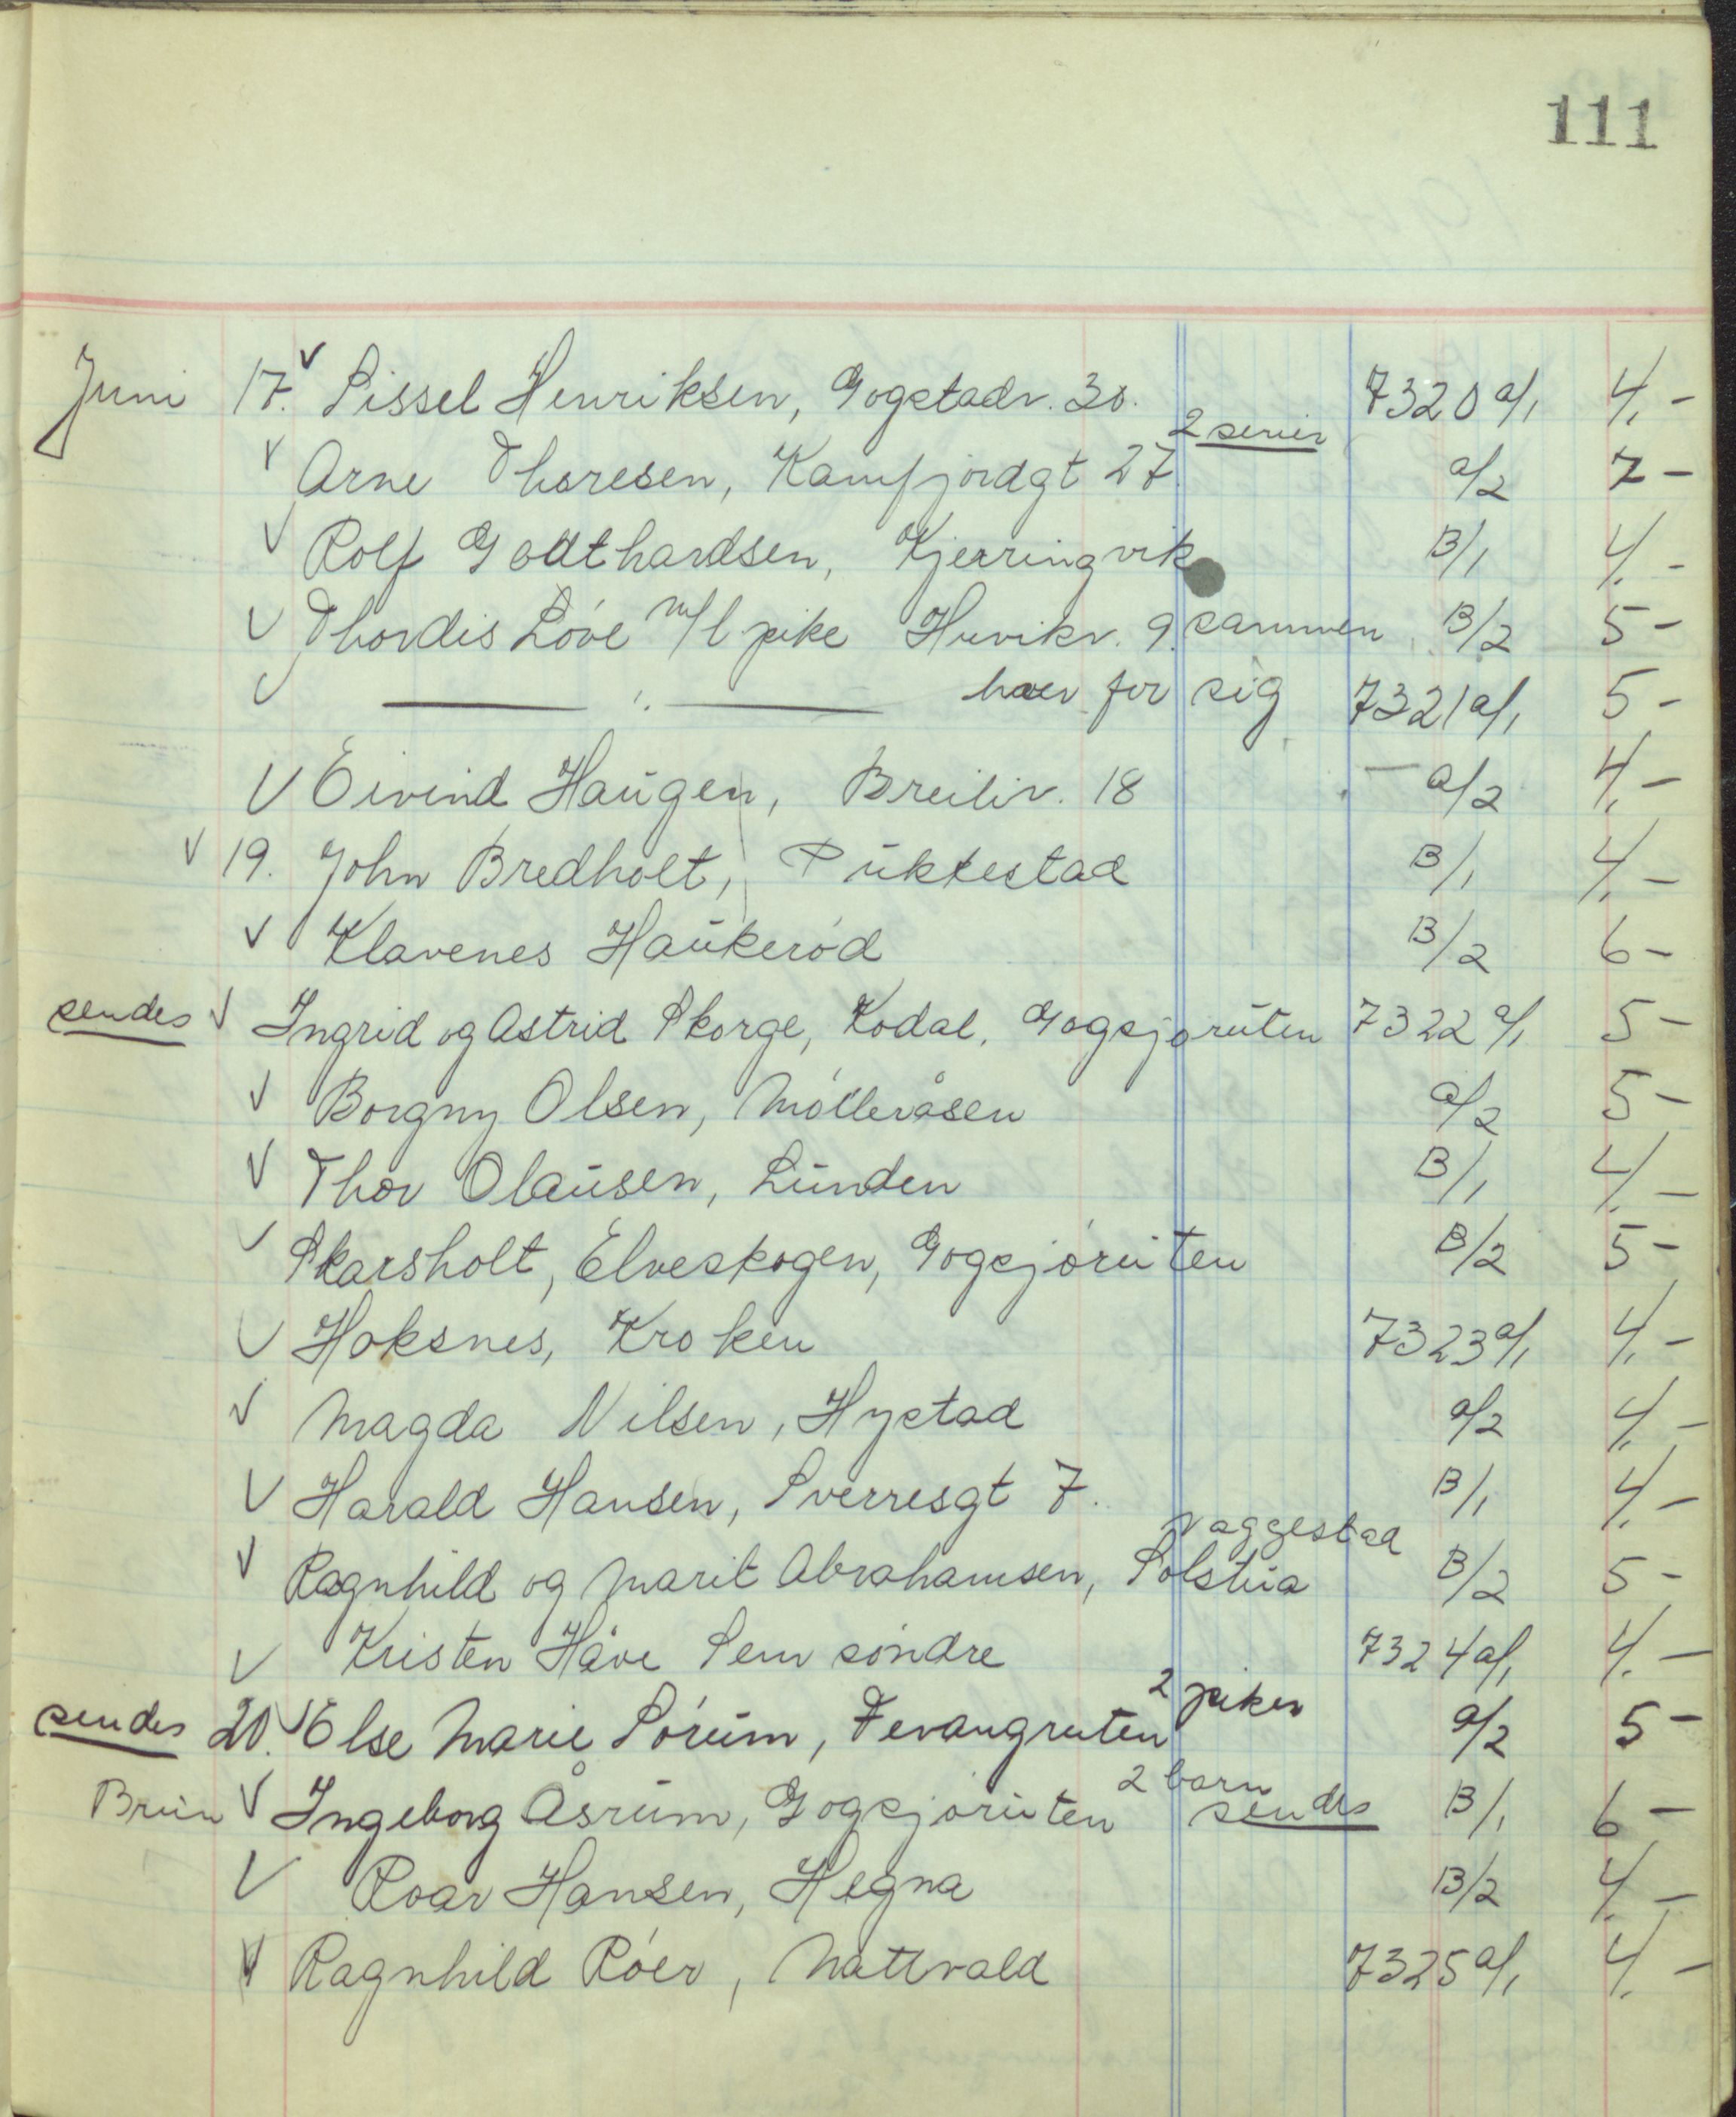 111
Juni 17. v Sissel Henriksen, Gogstadv. 30. 7320 a/1 4.-
v Arne Thoresen, Kamfjordgt 27. 2 serier a/2 7-
v Rolf Godthardsen, Kjerringvik B/1 4.-
v Thordis Løve m/l pike Huvikv. 9. sammen B/2 5-
v —— " —— hver for sig 7321 a/1 5-
v Eivind Haugen, Breiliv. 18 — a/2 4.-
v 19. John Bredholt, Pukkestad B/1 4.-
v Klavenes Haukerød B/2 6-
sendes v Ingrid og Astrid Skorge, Kodal, Gogsjøruten 7322 a/1 5-
v Borgny Olsen, Mølleråsen a/2 5-
v Thor Olausen, Lunden B/1 4.-
v Skarsholt, Elveskogen, Gogsjøruten B/2 5-
v Hoksnes, Kroken 7323 a/1 4.-
v Magda Nilsen, Hystad a/2 4.-
v Harald Hansen, Sverresgt 7. B/1 4.-
v Ragnhild og Marit Abrahamsen, Solstua Vaggestad B/2 5-
v Kristen Håve Sem søndre 7324 a/1 4.-
sendes 20. v Else Marie Sørum, Tevangruten 2 piker a/2 5-
Brun v Ingeborg Åsrum, Gogsjøruten 2 barn sendes B/1 6-
v Roar Hansen, Hegna B/2 4.-
v Ragnhild Röer, Nattvald 7325 a/1 4.-